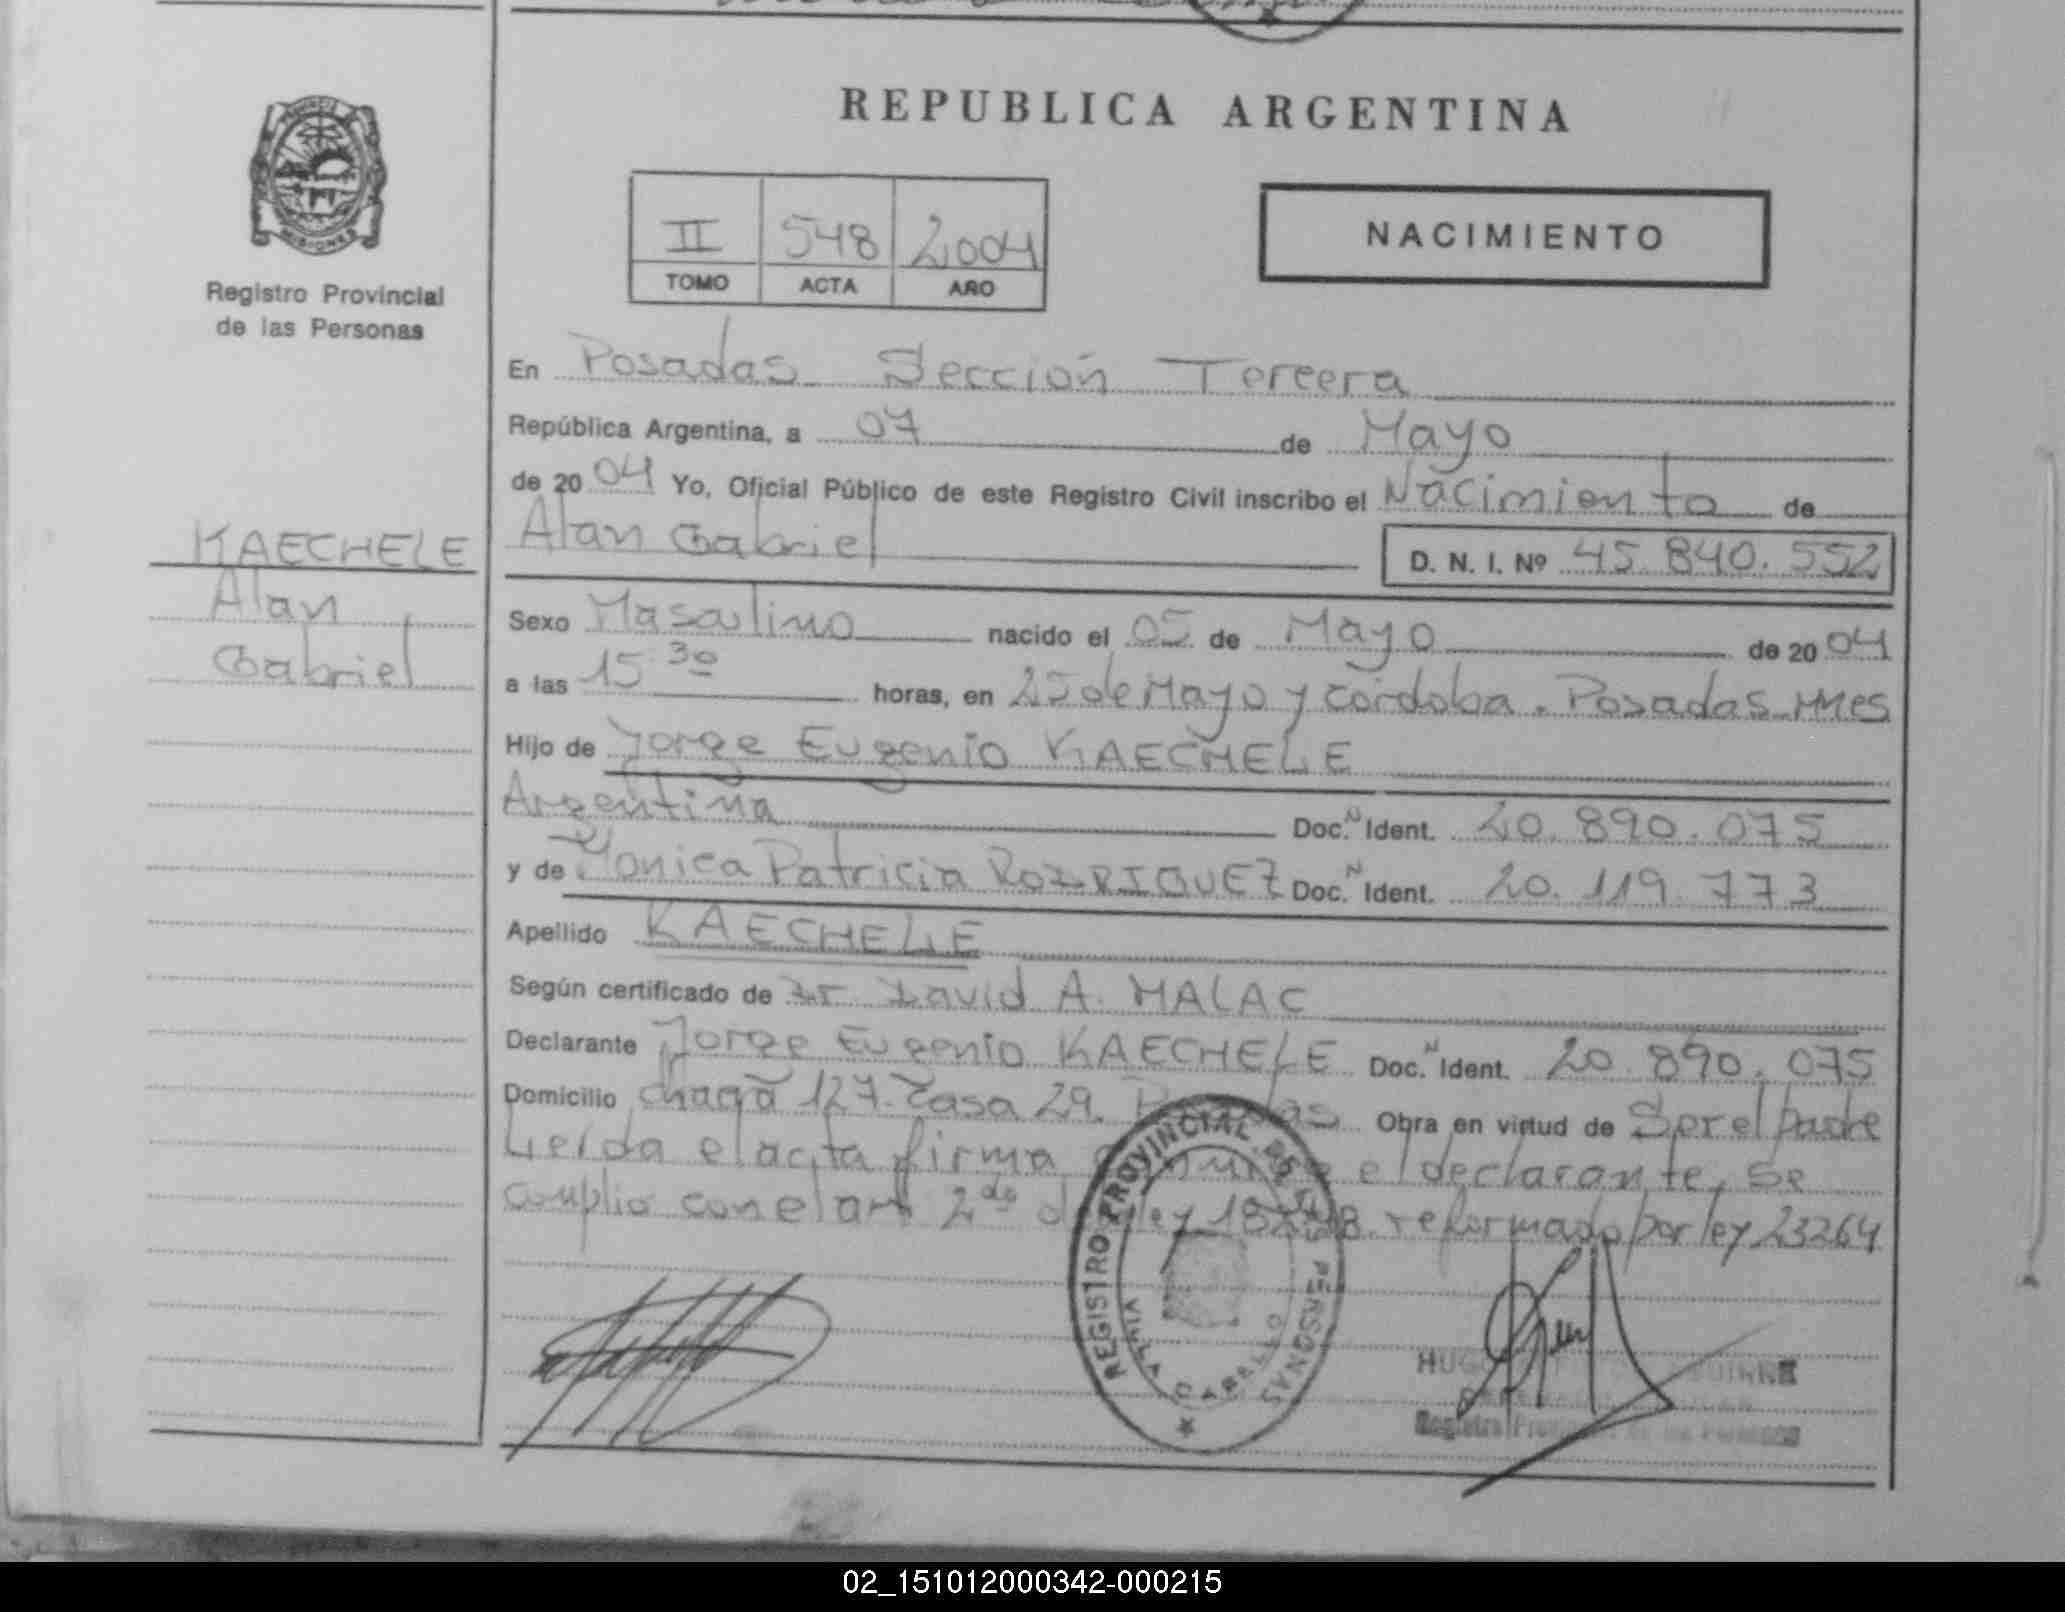 REPUBLICA ARGENTINA
MISIONES
Registro Provincial
de las Personas
II 548 2004
TOMO ACTA AÑO
NACIMIENTO
En Posadas Sección Tercera
República Argentina, a 07 de Mayo
de 20 04 Yo, Oficial Público de este Registro Civil inscribo el Nacimiento de
Alan Gabriel D. N. I. Nº 45.840.552
KAECHELE
Alan
Gabriel
Sexo Masculino nacido el 05 de Mayo de 20 04
a las 15 30 horas, en 25 de Mayo y Córdoba. Posadas Mnes
Hijo de Jorge Eugenio KAECHELE
Argentina Doc. N Ident. 20.890.075
y de Monica Patricia RODRIGUEZ Doc. N Ident. 20.119.773
Apellido KAECHELE
Según certificado de Dr David A. MALAC
Declarante Jorge Eugenio KAECHELE Doc. N Ident. 20.890.075
Domicilio chacra 127. Casa 29. Posadas Obra en virtud de Ser el padre
Leida el acta firma el declarante, se
cumplio con el art 2do ley reformado por ley 23264
REGISTRO PROVINCIAL DE LAS PERSONAS
VILLA CABELLO
HUGO
Registro Provincial de las Personas
02_151012000342-000215